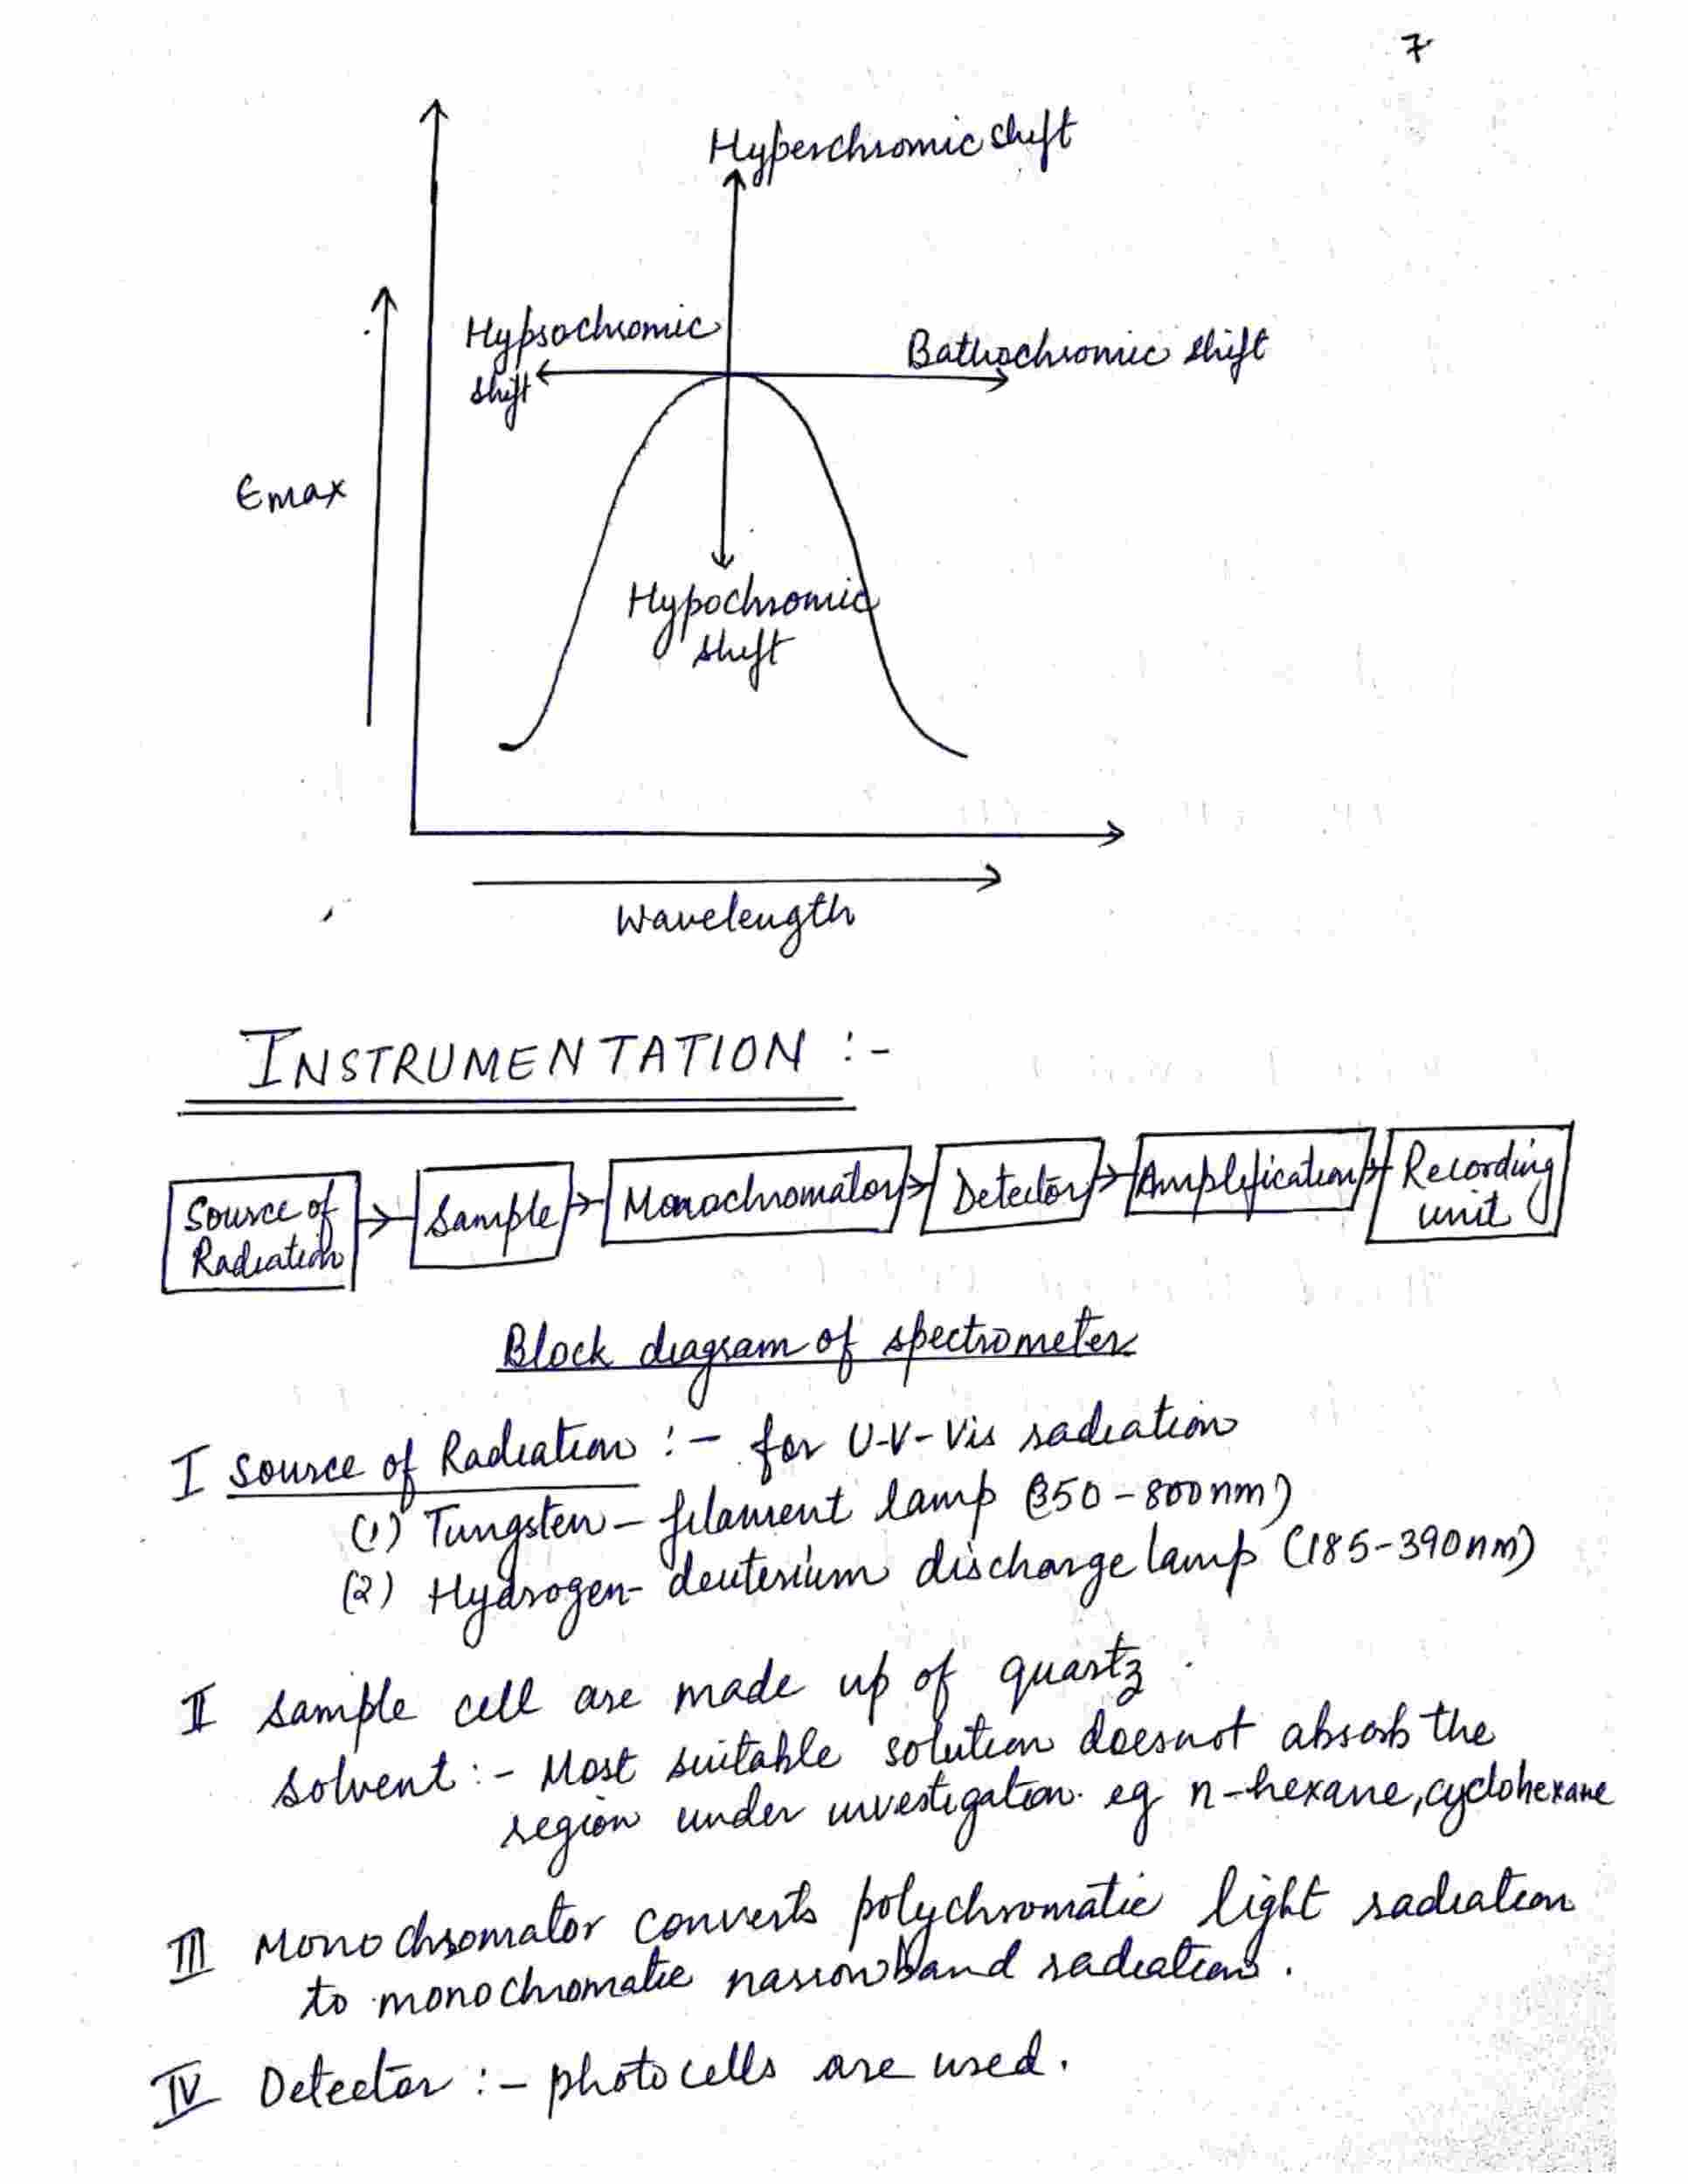 7
Hyperchromic shift
Hypsochromic
shift
Bathochromic shift
Emax
Hypochromic
shift
Wavelength
INSTRUMENTATION :-
Source of
Radiation
Sample
Monochromator
Detector
Amplification
Recording
unit
Block diagram of spectrometer
I Source of Radiation :- for U-V-Vis radiation
(1) Tungsten - filament lamp (350-800nm)
(2) Hydrogen- deuterium discharge lamp (185-390nm)
II Sample cell are made up of quartz.
Solvent :- Most suitable solution doesnot absorb the
region under investigation. eg n-hexane, cyclohexane
III Monochromator converts polychromatic light radiation
to monochromatic narrow band radiation.
IV Detector :- photocells are used.